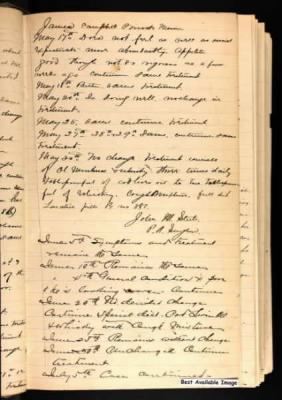 James Campbell Private Marine
May 17th Does not feel as well as usual
Expectorates more abundantly. Appetite
good though not as vigorous as a few
days ago continue same treatment
May 18th Rests same treatment.
May 20th Is doing well, no change in
treatment.
May 25, Same continue treatment
May 27th 28th & 29th Same, continue same
treatment.
May 30th No change treatment consists
of Ol Morrhuae & whisky three times daily
of whisky, Cough Mixture, full diet
John M. Steele.
P.A. Surgeon
June 5th Symptoms and treatment
remain the same.
June 10th Remains the same
June 15th General condition is good
He is looking Continue
June 20th No decided change
Continue special diet. Cod Liver Oil
& whisky with Cough Mixture
June 25th Remains without change
June 30th Unchanged Continue
treatment
July 5th Case continued.
Best Available Image